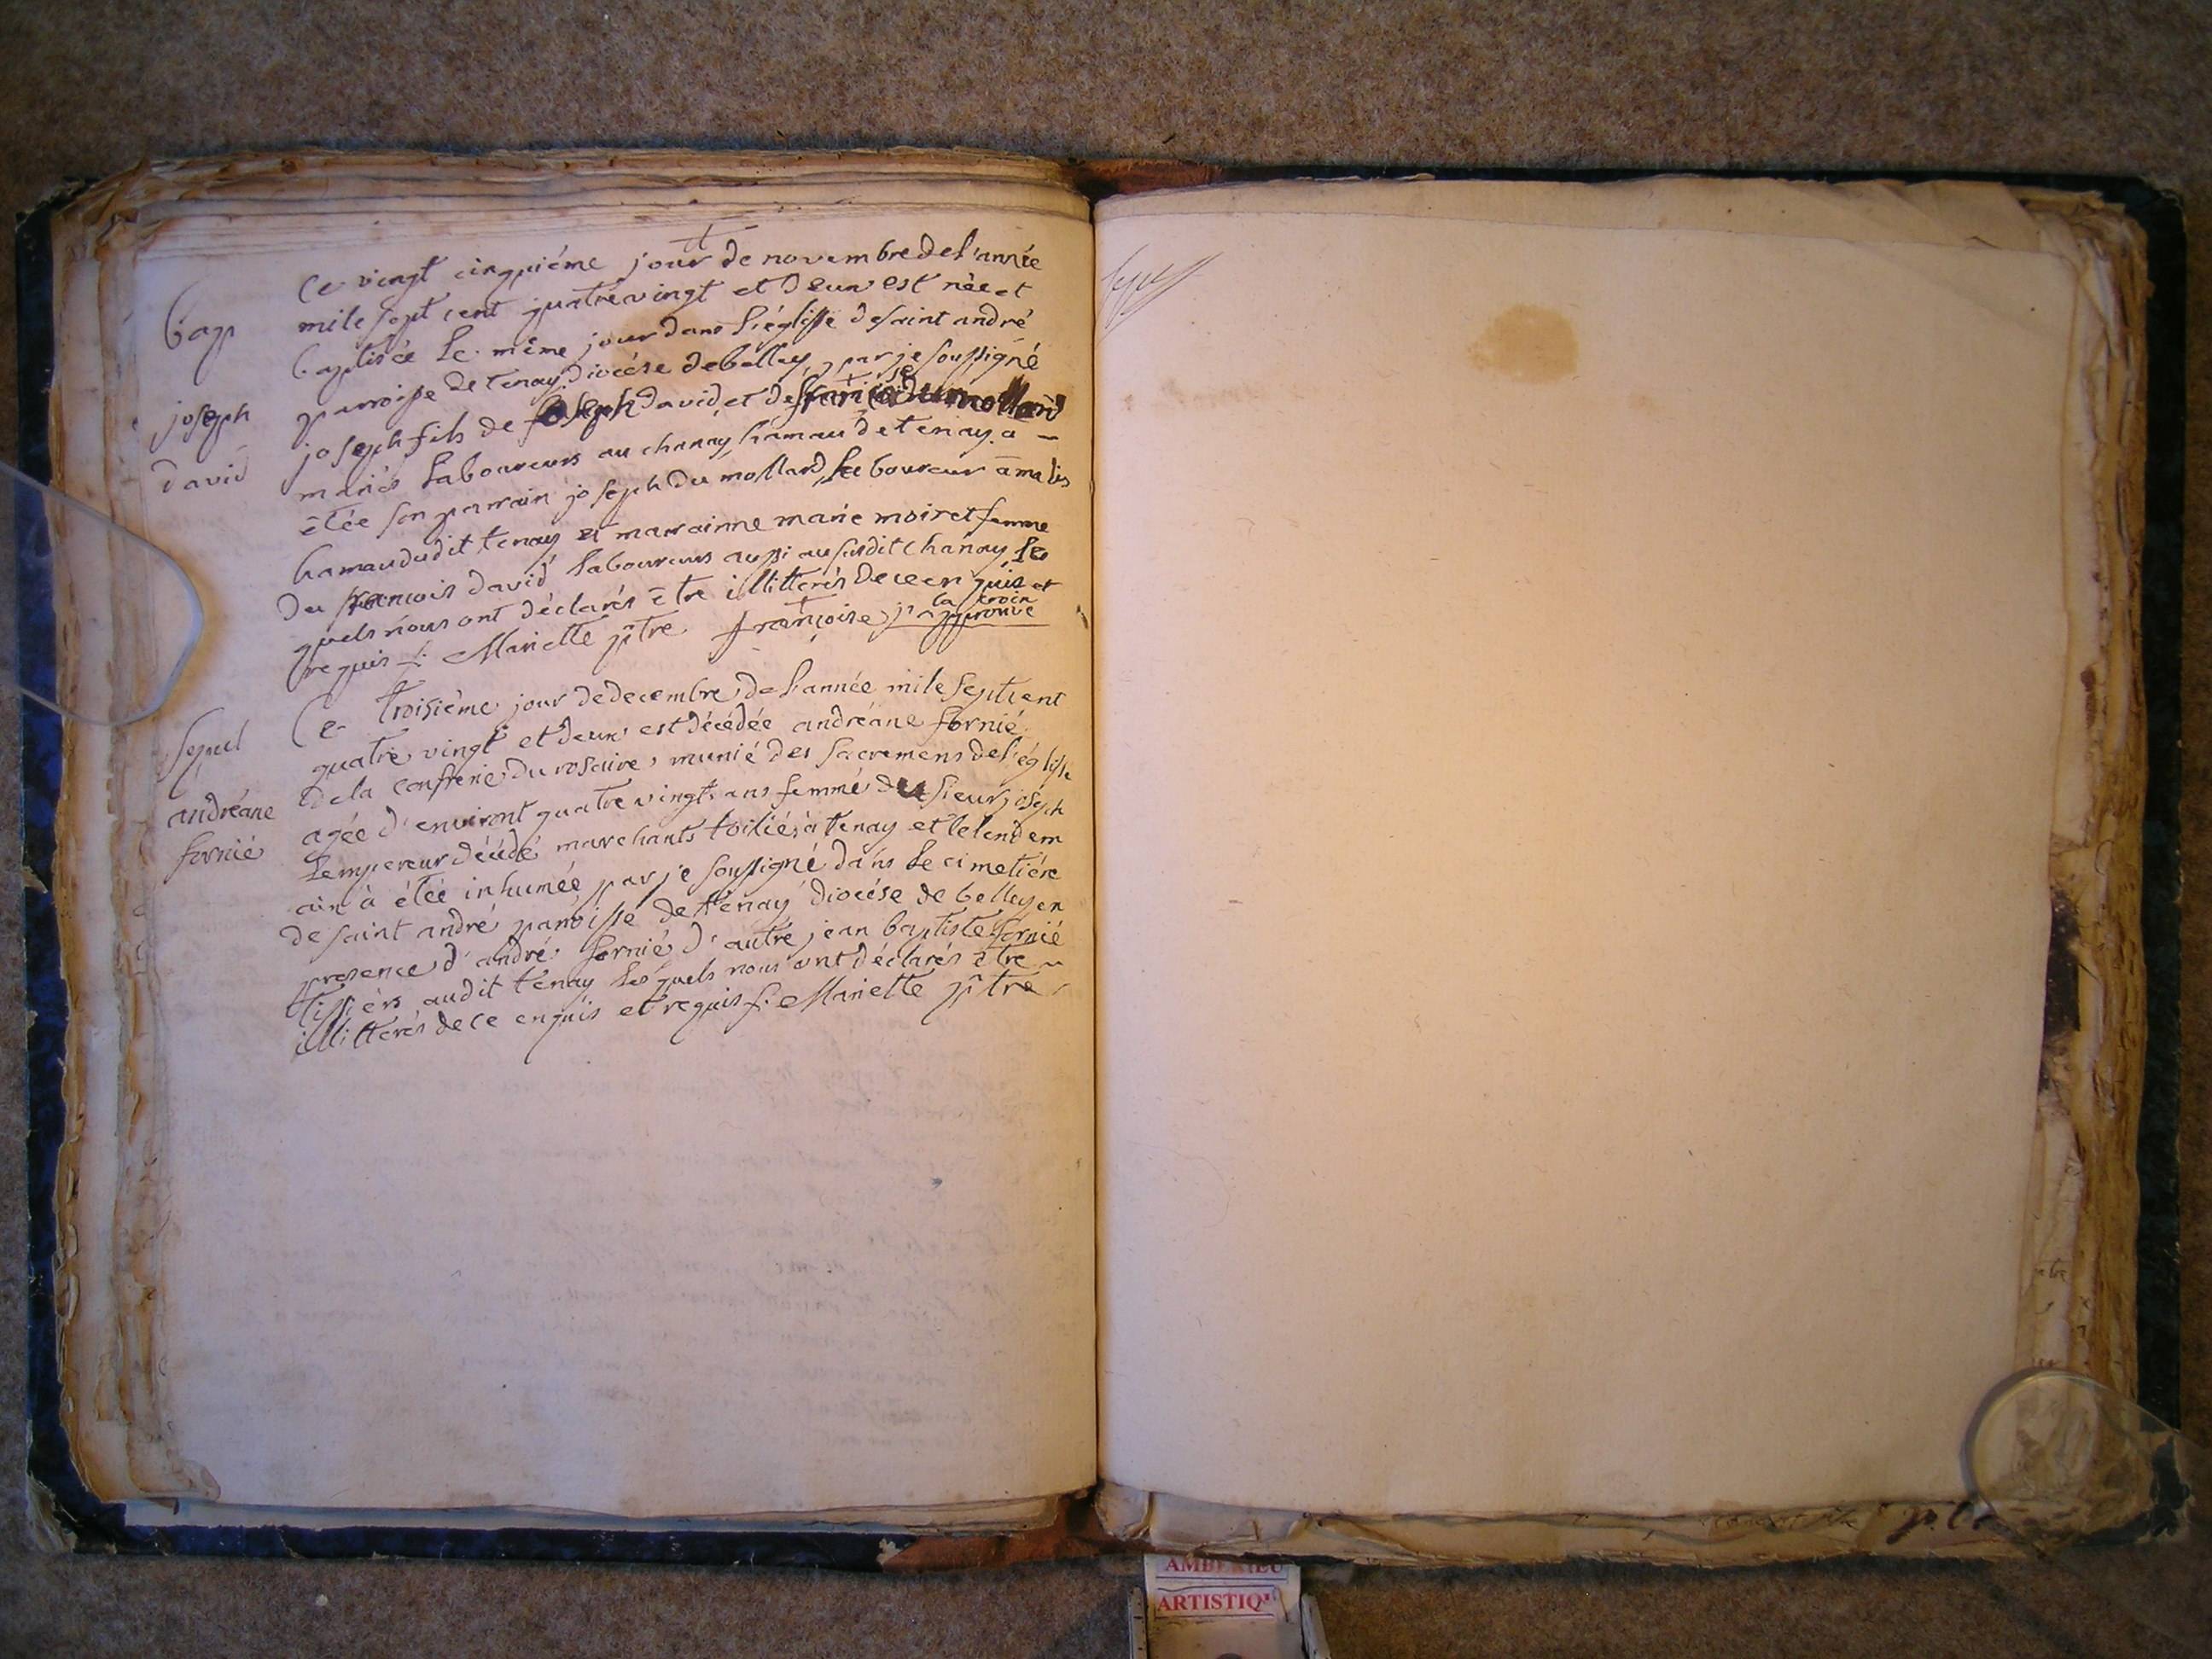 Ce vingt cinquiéme jour de novembre del'année
Bap
mile sept cent quatre vingt et deux est née et
baptisée Le même jour dans L'églisse desaint andré
parroisse de tenay diocése debelley par je soussigné
joseph
joseph fils de joseph david et de francoise dumollard
david
mariés Laboureurs au chanay hamau de tenay a
êtée son parrain joseph du mollard Laboureur à malis
hamau dudit tenay et marrainne marie moiret femme
du francois david Laboureurs aussi au susdit chanay Les
quels nous ont déclarés être illitterés de ce en quis et
requis f: Mariette ptre françoise j'approuve
la croix
Ce troisième jour de decembre de L'année mile sept cent
Sepul
quatre vingt et deux est décédée andréane fornié
de la confrerie du rosaire munié des sacremens del'églisse
andréane
agée d'environt quatre vingt ans femme du sieur joseph
fornié
Lempereur décédé marchants toiliés à tenay et lelendem
ain à êtée inhumée par je soussigné dans Le cimetiére
de saint andré parroisse de tenay diocése de belley en
presence d'andré fornié d'autre jean baptiste fornié
tissiérs audit tenay Lesquels nous ont déclarés être
illitterés de ce enquis et requis f: Mariette ptre
AMBERIEU
ARTISTIQ